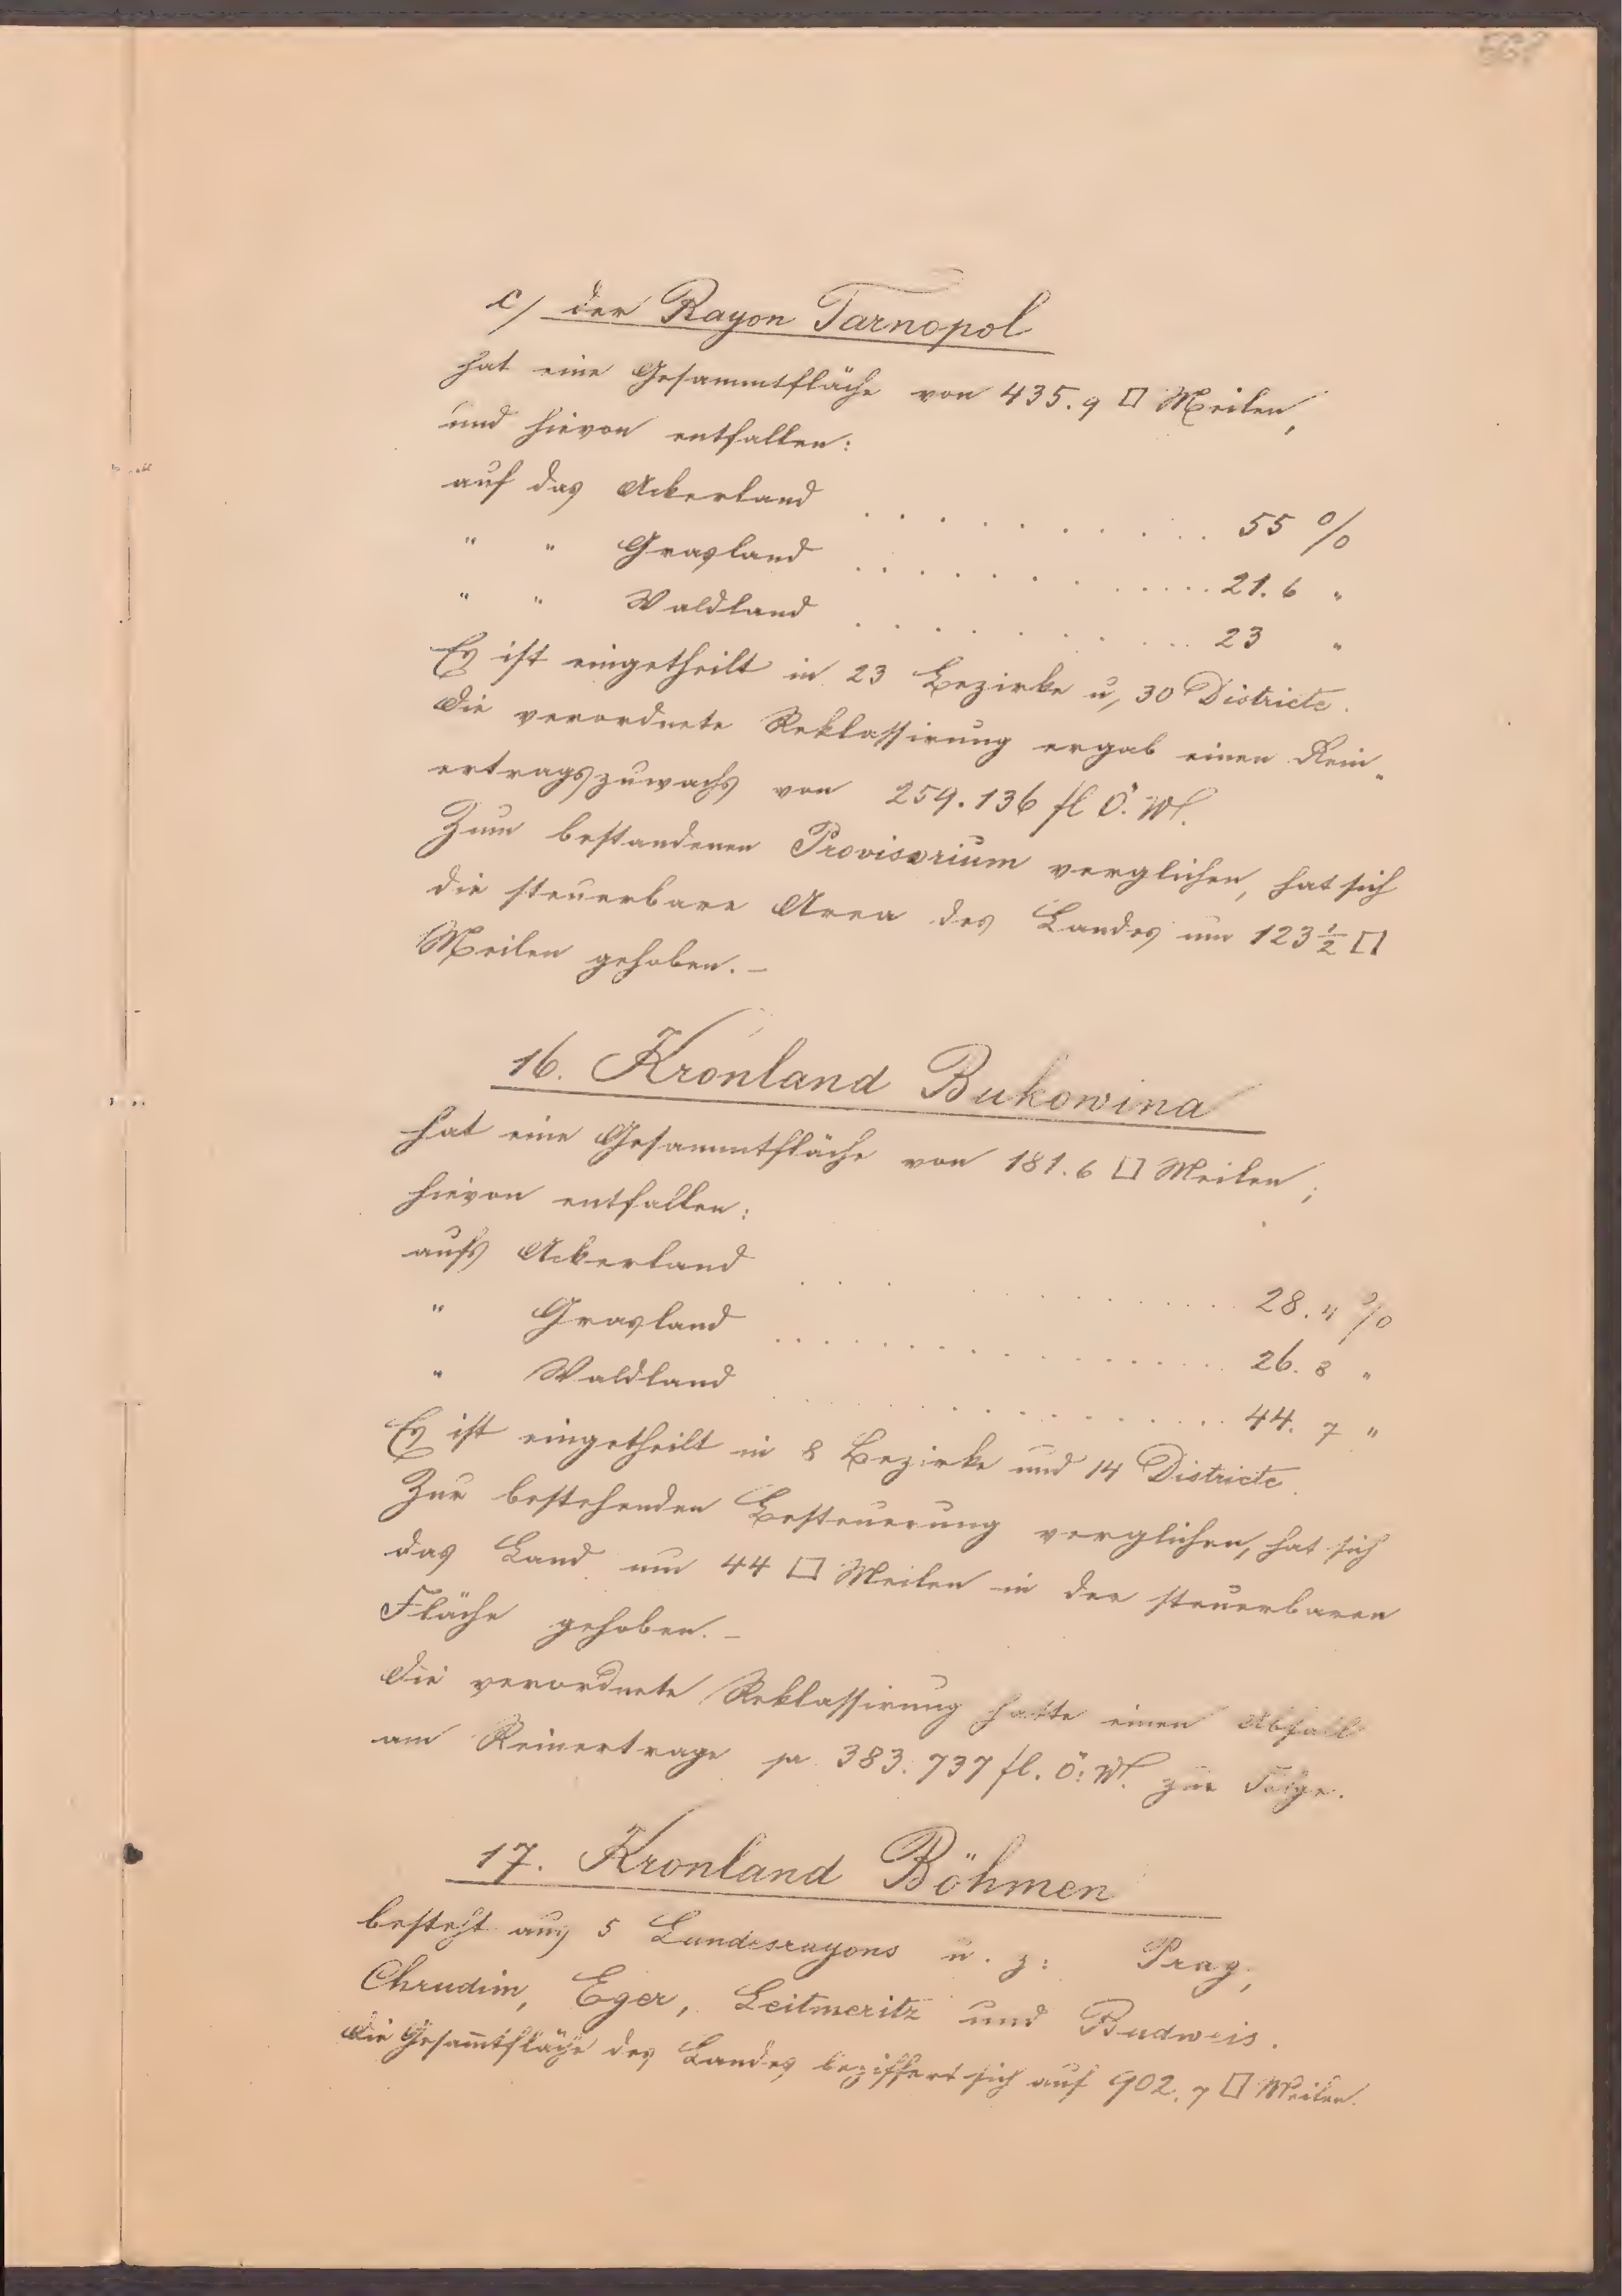 c/ der Rayon Tarnopol
hat eine Gesammtfläche von 435.9 □ Meilen,
und hievon entfallen:
auf das Ackerland . . . . . . . . . . 55 %
" " Grasland . . . . . . . . . . 21.6 "
" " Waldland . . . . . . . . . . 23 "
Es ist eingetheilt in 23 Bezirke u, 30 Districte.
Die verordnete Reklassirung ergab einen Rein„
ertragszuwachs von 259.136 fl Ö. W.
Zum bestandenen Provisorium verglichen, hat sich
die steuerbare Area des Landes um 123 ½ □
Meilen gehoben. –
16. Kronland Bukowina
hat eine Gesammtfläche von 181.6 □ Meilen;
hievon entfallen:
aufs Ackerland . . . . . . . . . . 28.4 %
" Grasland . . . . . . . . . . 26.8 "
" Waldland . . . . . . . . . . 44.7 "
Es ist eingetheilt in 8 Bezirke und 14 Districte.
Zur bestehenden Besteuerung verglichen, hat sich
das Land um 44 □ Meilen in der steuerbaren
Fläche gehoben. –
Die verordnete Reklassirung hatte einen Abfall
am Reinertrage pr 383.737 fl. Ö. W. zur Folge.
17. Kronland Böhmen
besteht aus 5 Landesrayons u. z: Prag,
Chrudim, Eger, Leitmeritz und Budweis.
Die Gesam̅tfläche des Landes beziffert sich auf 902.7 □ Meilen.